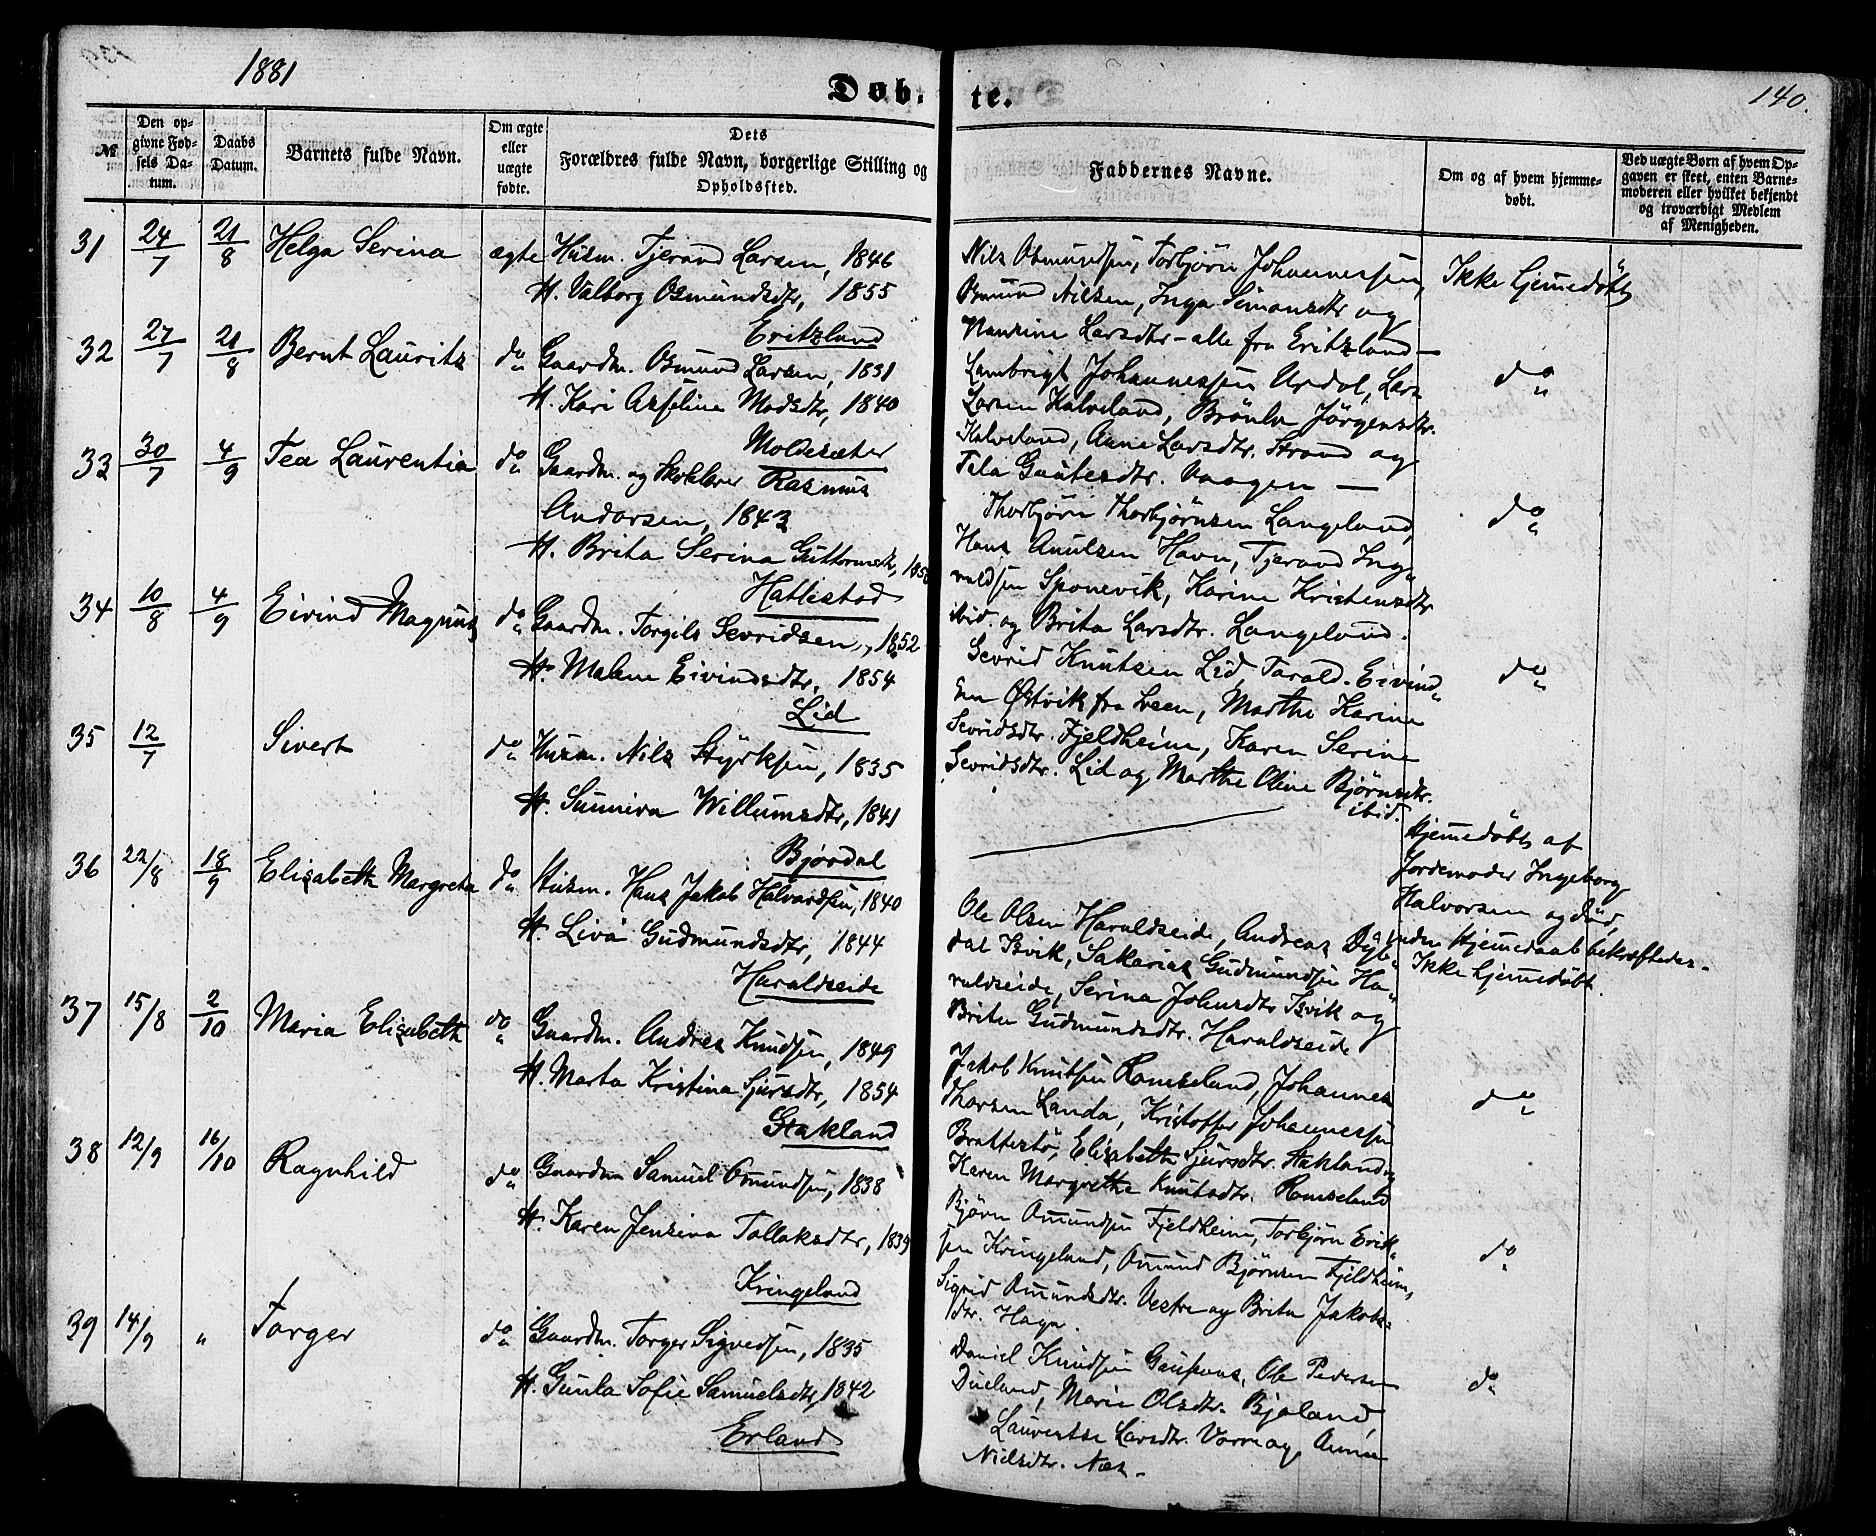 1881
Døb.
te.
140.
№
Den op-
givne Fød-
sels Da-
tum.
Daabs
Datum.
Barnets fulde Navn.
Om ægte
eller
uægte
fødte.
Dets
Forældres fulde Navn, borgerlige Stilling og
Opholdssted.
Faddernes Navne.
Om og af hvem hjemme-
døbt.
Ved uægte Børn af hvem Op-
gaven er skeet, enten Barne-
moderen eller hvilket bekjendt
og troværdigt Medlem
af Menigheden.
31 24/7 21/8 Helga Serina ægte Husm. Tjerand Larsen, 1846
H. Valborg Osmundsdtr, 1855
Eritzland
Nils Osmundsen, Torbjørn Johannessen,
Osmund Nilsen, Inga Simonsdtr og
Nansine Larsdtr - alle fra Eritzland -
Ikke hjemedøbt
32 27/7 21/8 Bernt Laurits do Gaardm. Osmund Larsen, 1831
H. Kari Asseline Madsdtr, 1840
Moldesæter
Lambrigt Johannessen Updal, Lars
Larsen Halveland, Brønla Jørgensdtr.
Halveland, Anne Larsdtr. Strand og
Tila Gautesdtr. Vaagen -
do
33 30/7 4/9 Tea Laurentia do Gaardm. og Skolelærer Rasmus
Andersen, 1843
H. Brita Serina Guttormsdtr,
Hattestad
Thorbjørn Thorbjørnsen Langeland,
Hans Anulsen Havn, Tjerand Ing-
valdsen Sponevik, Karine Kristensdtr
ibid. og Brita Larsdtr. Langeland.
do
34 10/8 4/9 Eivind Magnus do Gaardm. Torgils Sevridsen, 1852
H. Malene Eivindsdtr, 1854
Lid
Sevrid Knutsen Lid, Tarald Eivind-
sen Østvik fra Sveen, Marthe Karine
Sevridsdtr. Fjeldheim, Karen Serine
Sevridsdtr. Lid og Marthe Oline Bjørnsdtr.
ibid.
do
35 12/7 Sivert do Husm. Nils Styrksen, 1835
H. Sunniva Willumsdtr, 1841
Bjordal
Hjemedøbt af
Jordemoder Ingeborg
Halvorsen og død,
inden Hjemedaab bekræftedes -
36 22/8 18/9 Elisabeth Margreta do Husm. Hans Jakob Halvardsen, 1840
H. Liva Gudmundsdtr, 1844
Haraldseide
Ole Olsen Haraldseide, Andreas Dyb-
dal Isvik, Sakarias Gudmundsen Ha-
raldseide, Serina Johnsdtr Isvik og
Brita Gudmundsdtr. Haraldseide
Ikke hjemedøbt.
37 15/8 2/10 Maria Elisabeth do Gaardm. Andres Knudsen, 1849
H. Marta Kristina Sjursdtr, 1854
Stakland
Jakob Knutsen Ramseland, Johannes
Thorsen Landa, Kristoffer Johannessen
Brattestø, Elisabeth Sjursdtr. Stakland og
Karen Margrethe Knutsdtr. Ramseland
do
38 12/9 16/10 Ragnhild do Gaardm Samuel Omundsen, 1838
H. Karen Jensina Tollaksdtr, 1839
Kringeland
Bjørn Omundsen Fjeldheim, Torbjørn Erik-
sen Kringeland, Omund Bjørnsen Fjeldheim,
Sigrid Omundsdtr. Vestre og Brita Jakobs-
dtr. Haga.
do
39 14/9 „ Torger do Gaardm. Torger Sigvedsen, 1835
H. Gunla Sofie Samuelsdtr, 1842
Erland
Daniel Knudsen Ole Pedersen
Dueland, Marie Olsdtr. Bjoland,
Laurentse Larsdtr. Vorre og Anna
Nielsdtr. Næs -
do